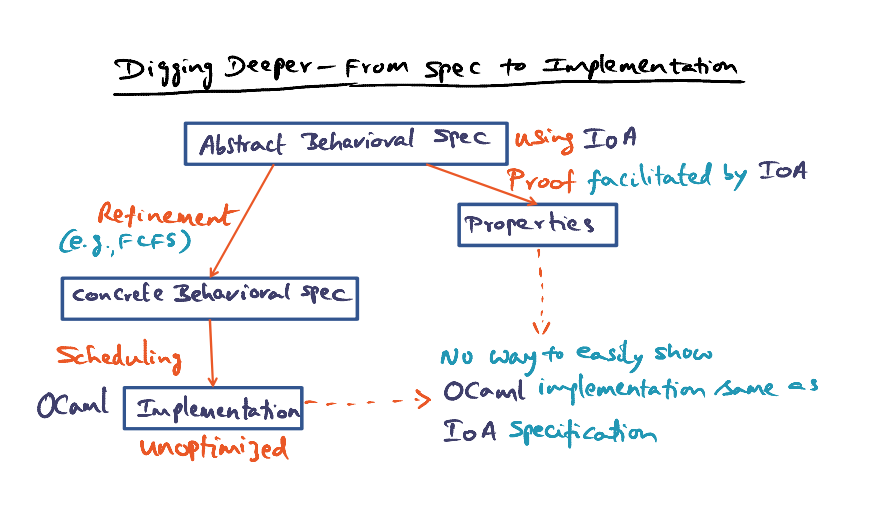 Digging Deeper – From Spec to Implementation
Abstract Behavioral Spec using IoA
Proof facilitated by IoA
Refinement
(e.g., FCFS)
Properties
Concrete Behavioral spec
Scheduling
OCaml Implementation
unoptimized
No way to easily show
OCaml implementation same as
IoA Specification